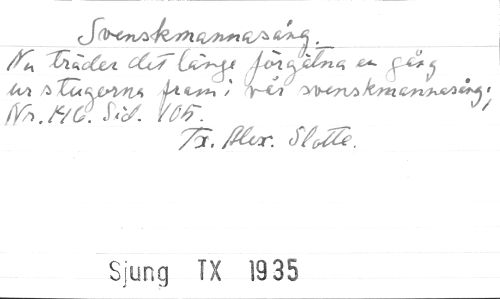 Svenskmannasång.
Nu träder det länge förgätna en gång
ur stugorna fram i vår svenskmannasång;
Nr. 146. Sid. 105.
Tx. Alex. Slotte.
Sjung TX 1935